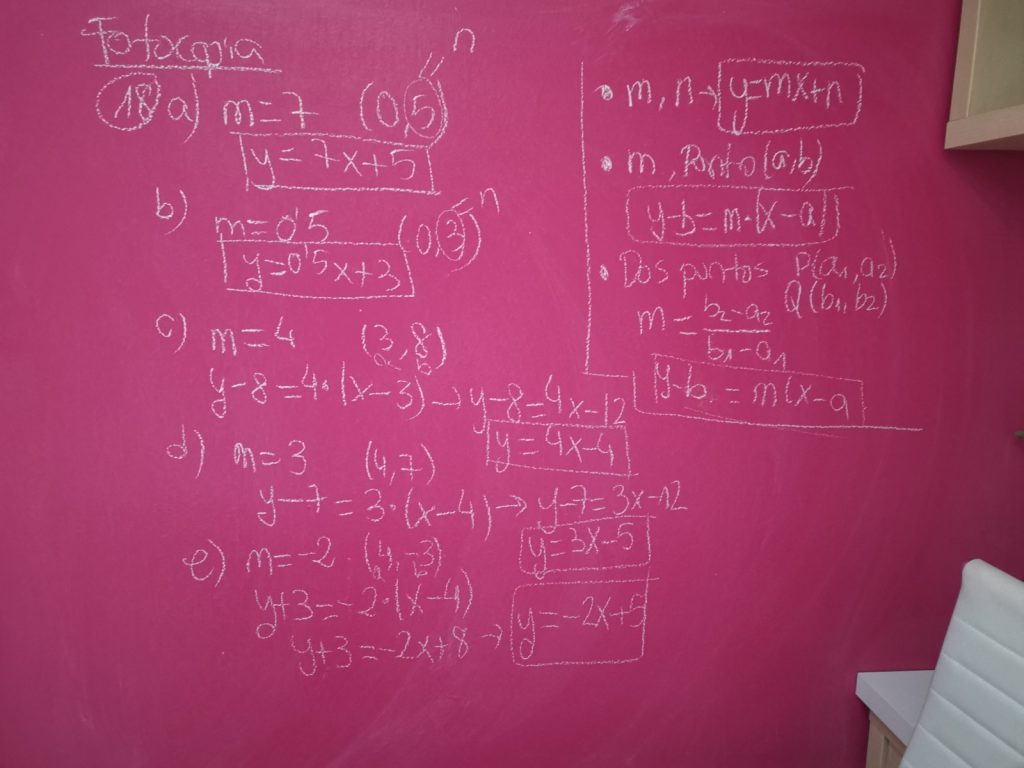 Fotocopia
18 a) m=7 (0,5) n
y=7x+5
b) m=0'5 (0,3) n
y=0'5x+3
c) m=4 (3,8)
y-8=4·(x-3)→y-8=4x-12
y=4x-4
d) m=3 (4,7)
y-7=3·(x-4)→y-7=3x-12
y=3x-5
e) m=-2 (4,-3)
y+3=-2·(x-4)
y+3=-2x+8→ y=-2x+5
• m, n→ y=mx+n
• m, Punto (a,b)
y-b=m·(x-a)
• Dos puntos P(a₁,a₂)
Q(b₁,b₂)
m=\frac{b₂-a₂}{b₁-a₁}
y-b=m(x-a